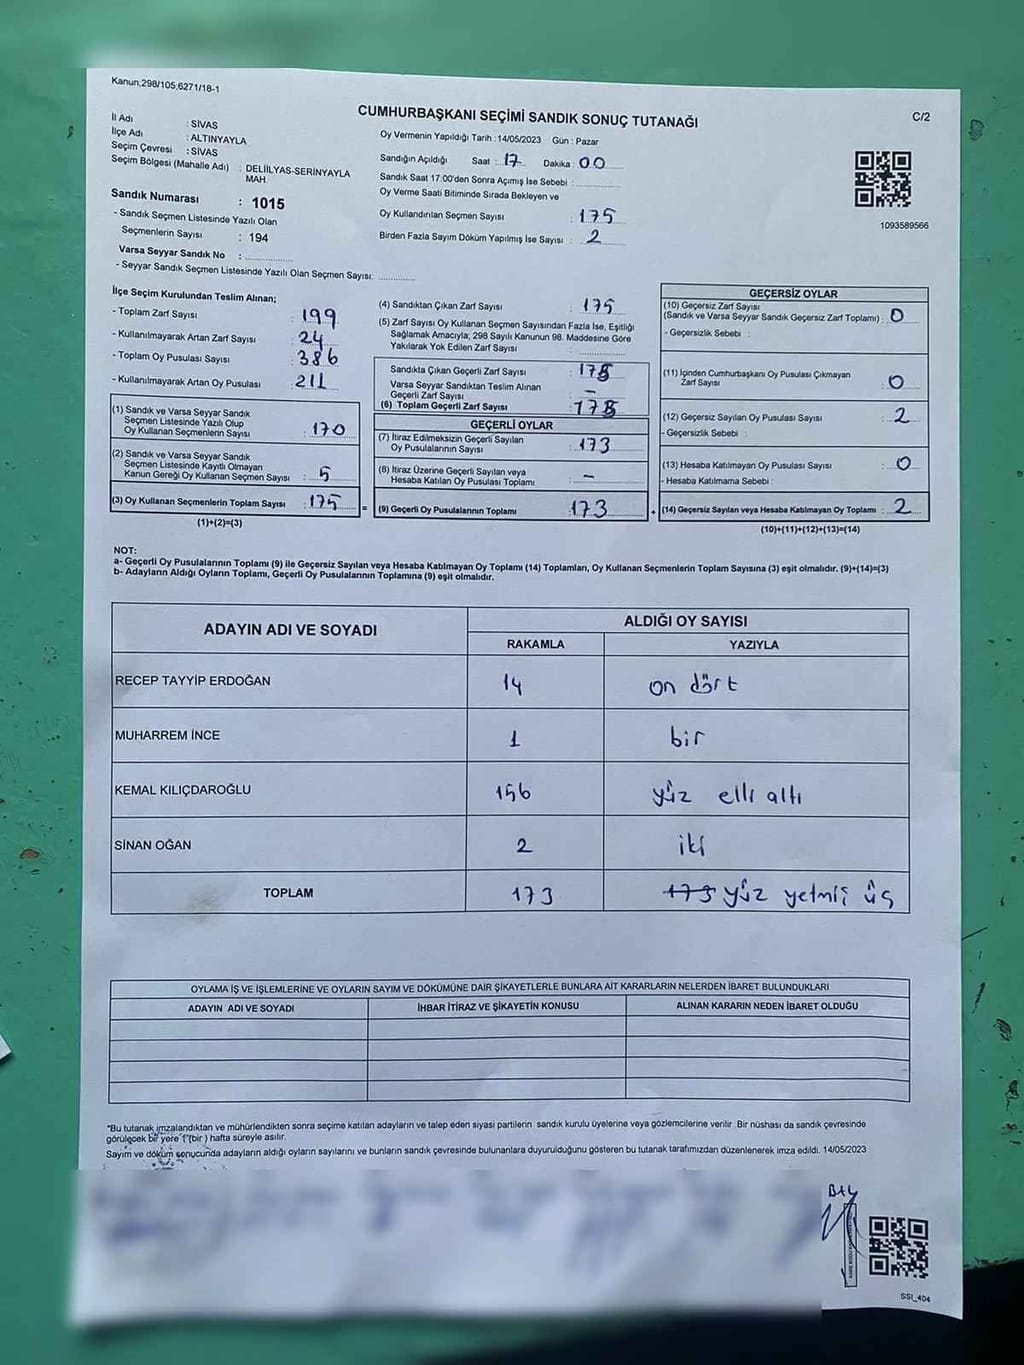 Kanun;298/105;6271/18-1
CUMHURBAŞKANI SEÇİMİ SANDIK SONUÇ TUTANAĞI
C/2
İl Adı : SİVAS
İlçe Adı : ALTINYAYLA
Seçim Çevresi : SİVAS
Seçim Bölgesi (Mahalle Adı) : DELİİLYAS-SERİNYAYLA
MAH.
Sandık Numarası : 1015
- Sandık Seçmen Listesinde Yazılı Olan
Seçmenlerin Sayısı : 194
Varsa Seyyar Sandık No :
- Seyyar Sandık Seçmen Listesinde Yazılı Olan Seçmen Sayısı:
Oy Vermenin Yapıldığı Tarih : 14/05/2023 Gün : Pazar
Sandığın Açıldığı Saat : 17 Dakika : 00
Sandık Saat 17:00'den Sonra Açımış İse Sebebi :
Oy Verme Saati Bitiminde Sırada Bekleyen ve
Oy Kullandırılan Seçmen Sayısı : 175
Birden Fazla Sayım Döküm Yapılmış İse Sayısı : 2
1093589566
İlçe Seçim Kurulundan Teslim Alınan;
- Toplam Zarf Sayısı : 199
- Kullanılmayarak Artan Zarf Sayısı : 24
- Toplam Oy Pusulası Sayısı : 386
- Kullanılmayarak Artan Oy Pusulası : 211
(1) Sandık ve Varsa Seyyar Sandık
Seçmen Listesinde Yazılı Olup
Oy Kullanan Seçmenlerin Sayısı : 170
(2) Sandık ve Varsa Seyyar Sandık
Seçmen Listesinde Kayıtlı Olmayan
Kanun Gereği Oy Kullanan Seçmen Sayısı : 5
(3) Oy Kullanan Seçmenlerin Toplam Sayısı : 175
(1)+(2)=(3)
(4) Sandıktan Çıkan Zarf Sayısı : 175
(5) Zarf Sayısı Oy Kullanan Seçmen Sayısından Fazla İse, Eşitliği
Sağlamak Amacıyla; 298 Sayılı Kanunun 98. Maddesine Göre
Yakılarak Yok Edilen Zarf Sayısı :
Sandıkta Çıkan Geçerli Zarf Sayısı : 175
Varsa Seyyar Sandıktan Teslim Alınan
Geçerli Zarf Sayısı : -
(6) Toplam Geçerli Zarf Sayısı : 175
=
GEÇERLİ OYLAR
(7) İtiraz Edilmeksizin Geçerli Sayılan
Oy Pusulalarının Sayısı : 173
(8) İtiraz Üzerine Geçerli Sayılan veya
Hesaba Katılan Oy Pusulası Toplamı : -
(9) Geçerli Oy Pusulalarının Toplamı : 173
+
GEÇERSİZ OYLAR
(10) Geçersiz Zarf Sayısı
(Sandık ve Varsa Seyyar Sandık Geçersiz Zarf Toplamı) : 0
- Geçersizlik Sebebi :
(11) İçinden Cumhurbaşkanı Oy Pusulası Çıkmayan
Zarf Sayısı : 0
(12) Geçersiz Sayılan Oy Pusulası Sayısı : 2
- Geçersizlik Sebebi :
(13) Hesaba Katılmayan Oy Pusulası Sayısı : 0
- Hesaba Katılmama Sebebi :
(14) Geçersiz Sayılan veya Hesaba Katılmayan Oy Toplamı : 2
(10)+(11)+(12)+(13)=(14)
NOT:
a- Geçerli Oy Pusulalarının Toplamı (9) ile Geçersiz Sayılan veya Hesaba Katılmayan Oy Toplamı (14) Toplamları, Oy Kullanan Seçmenlerin Toplam Sayısına (3) eşit olmalıdır. (9)+(14)=(3)
b- Adayların Aldığı Oyların Toplamı, Geçerli Oy Pusulalarının Toplamına (9) eşit olmalıdır.
ADAYIN ADI VE SOYADI ALDIĞI OY SAYISI
RAKAMLA YAZIYLA
RECEP TAYYİP ERDOĞAN 14 on dört
MUHARREM İNCE 1 bir
KEMAL KILIÇDAROĞLU 156 yüz elli altı
SİNAN OĞAN 2 iki
TOPLAM 173 173 yüz yetmiş üç
OYLAMA İŞ VE İŞLEMLERİNE VE OYLARIN SAYIM VE DÖKÜMÜNE DAİR ŞİKAYETLERLE BUNLARA AİT KARARLARIN NELERDEN İBARET BULUNDUKLARI
ADAYIN ADI VE SOYADI İHBAR İTİRAZ VE ŞİKAYETİN KONUSU ALINAN KARARIN NEDEN İBARET OLDUĞU
*Bu tutanak imzalandıktan ve mühürlendikten sonra seçime katılan adayların ve talep eden siyasi partilerin sandık kurulu üyelerine veya gözlemcilerine verilir. Bir nüshası da sandık çevresinde
görülecek bir yere 1 (bir) hafta süreyle asılır.
Sayım ve döküm sonucunda adayların aldığı oyların sayılarını ve bunların sandık çevresinde bulunanlara duyurulduğunu gösteren bu tutanak tarafımızdan düzenlenerek imza edildi. 14/05/2023
SSI_404